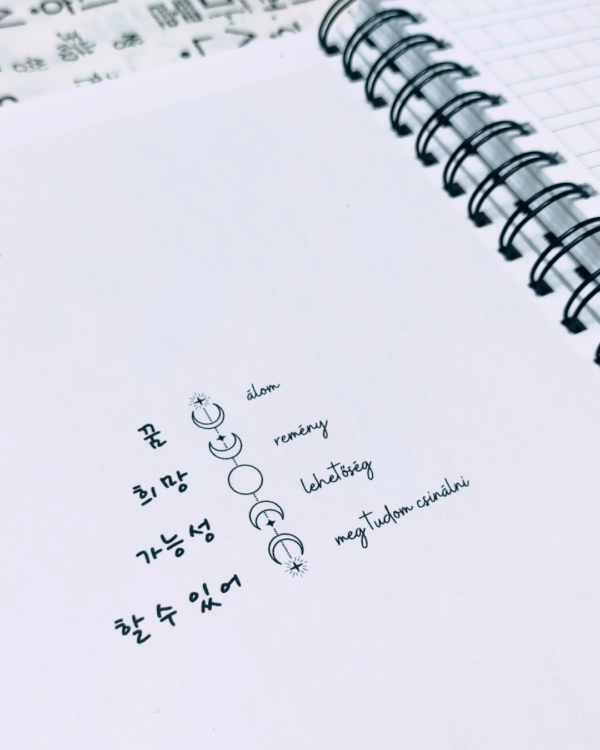 꿈 álom
희망 remény
가능성 lehetőség
할 수 있어 meg tudom csinálni